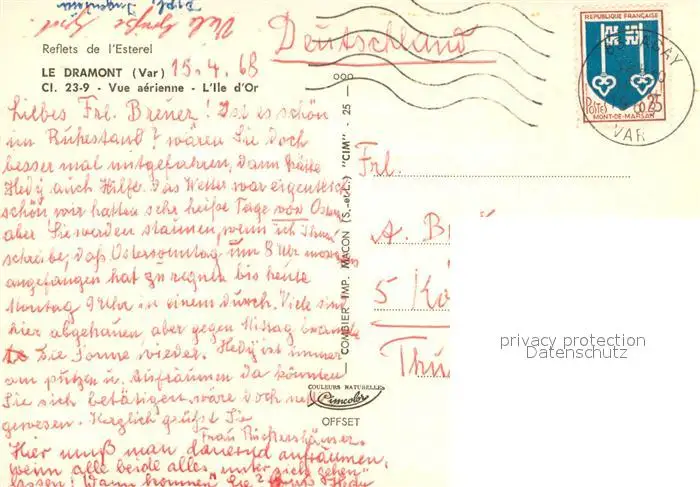 Viele Grüße
Dipl. Ingenieur
Deutschland
Reflets de l'Esterel
LE DRAMONT (Var) 15.4.68
Cl. 23-9 - Vue aérienne - L'Ile d'Or
Liebes Frl. Breuer! Ist es schön
im Ruhestand? wären Sie doch
besser mal mitgefahren, dann hätte
Hedy auch Hilfe. Das Wetter war eigentlich
schön wir hatten sehr heiße Tage vor Ostern
aber Sie werden staunen, wenn ich Ihnen
schreibe, daß Ostersonntag um 8 Uhr morgens
angefangen hat zu regnen bis heute
Montag 9 Uhr in einem durch. Viele sind
hier abgehauen, aber gegen Mittag
die Sonne wieder. Hedy ist immer
am putzen u. Aufräumen da könnten
Sie sich betätigen, wäre doch nett
gewesen. Herzlich grüßt Sie
Frau
Hier muß man dauernd aufräumen,
wenn alle beide alles "unter sich gehen"
lassen! Wann kommen Sie? Hedy
COMBIER IMP. MACON (S.-et-L.) "CIM" - 25 -
COULEURS NATURELLES
Cimcolor
OFFSET
REPUBLIQUE FRANÇAISE
POSTES 0,25
MONT-DE-MARSAN
VAR
Frl.
A. B
5 Kö
Thu
privacy protection
Datenschutz